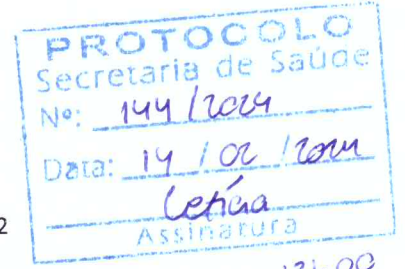 PROTOCOLO
Secretaria de Saúde
Nº: 144/2024
Data: 14/02/2024
Letícia
Assinatura
2